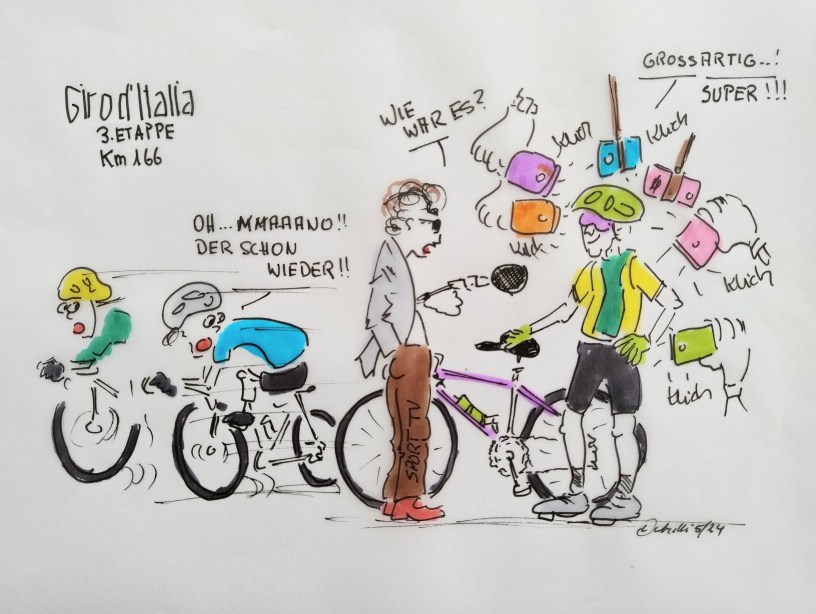 Giro d'Italia
3. ETAPPE
Km 166
OH... MMAAANO!!
DER SCHON
WIEDER!!
WIE
WAR ES?
GROSSARTIG..!
SUPER!!!
klich
klich
klich
klich
SPORT TV
5/24